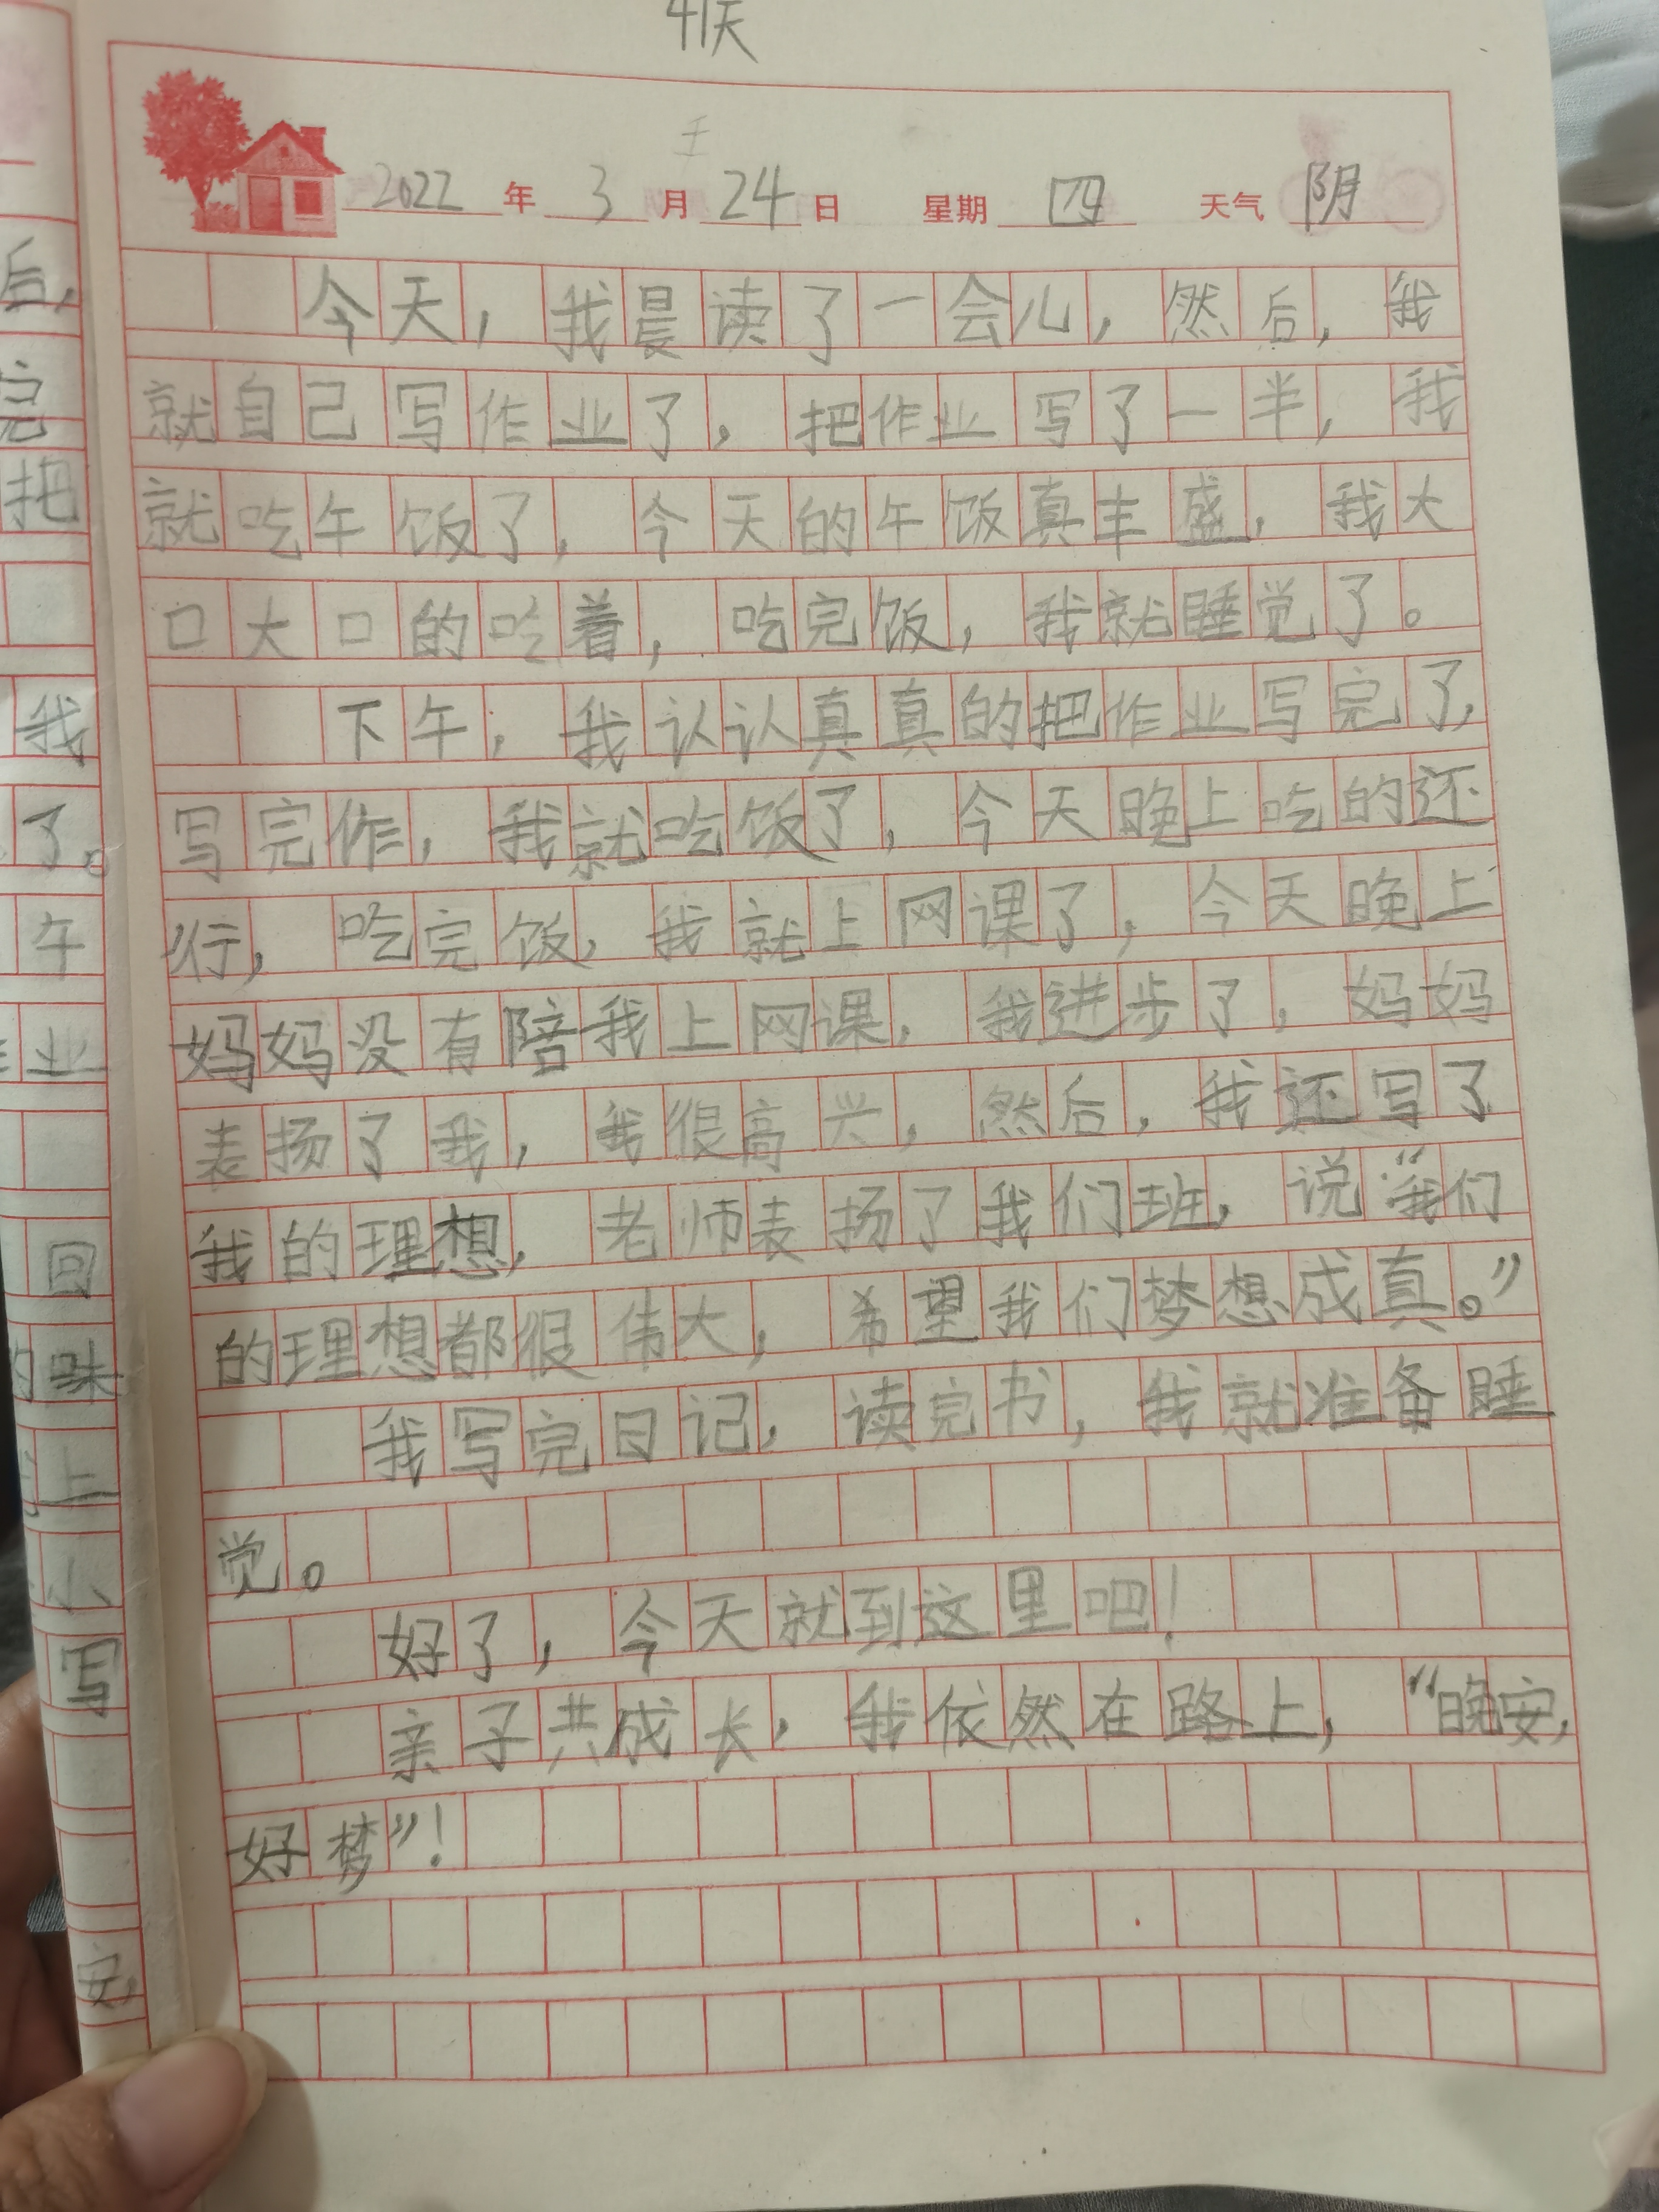 41天
王
2022年3月24日 星期四 天气阴
今天，我晨读了一会儿，然后，我
就自己写作业了，把作业写了一半，我
就吃午饭了，今天的午饭真丰盛，我大
口大口的吃着，吃完饭，我就睡觉了。
下午，我认认真真的把作业写完了，
写完作，我就吃饭了，今天晚上吃的还
行，吃完饭，我就上网课了，今天晚上
妈妈没有陪我上网课，我进步了，妈妈
表扬了我，我很高兴，然后，我还写了
我的理想，老师表扬了我们班，说“我们
的理想都很伟大，希望我们梦想成真。”
我写完日记，读完书，我就准备睡
觉。
好了，今天就到这里吧！
亲子共成长，我依然在路上，“晚安，
好梦”！
后，
完
把
我
了。
午
业
回
味
上
小
写
安，